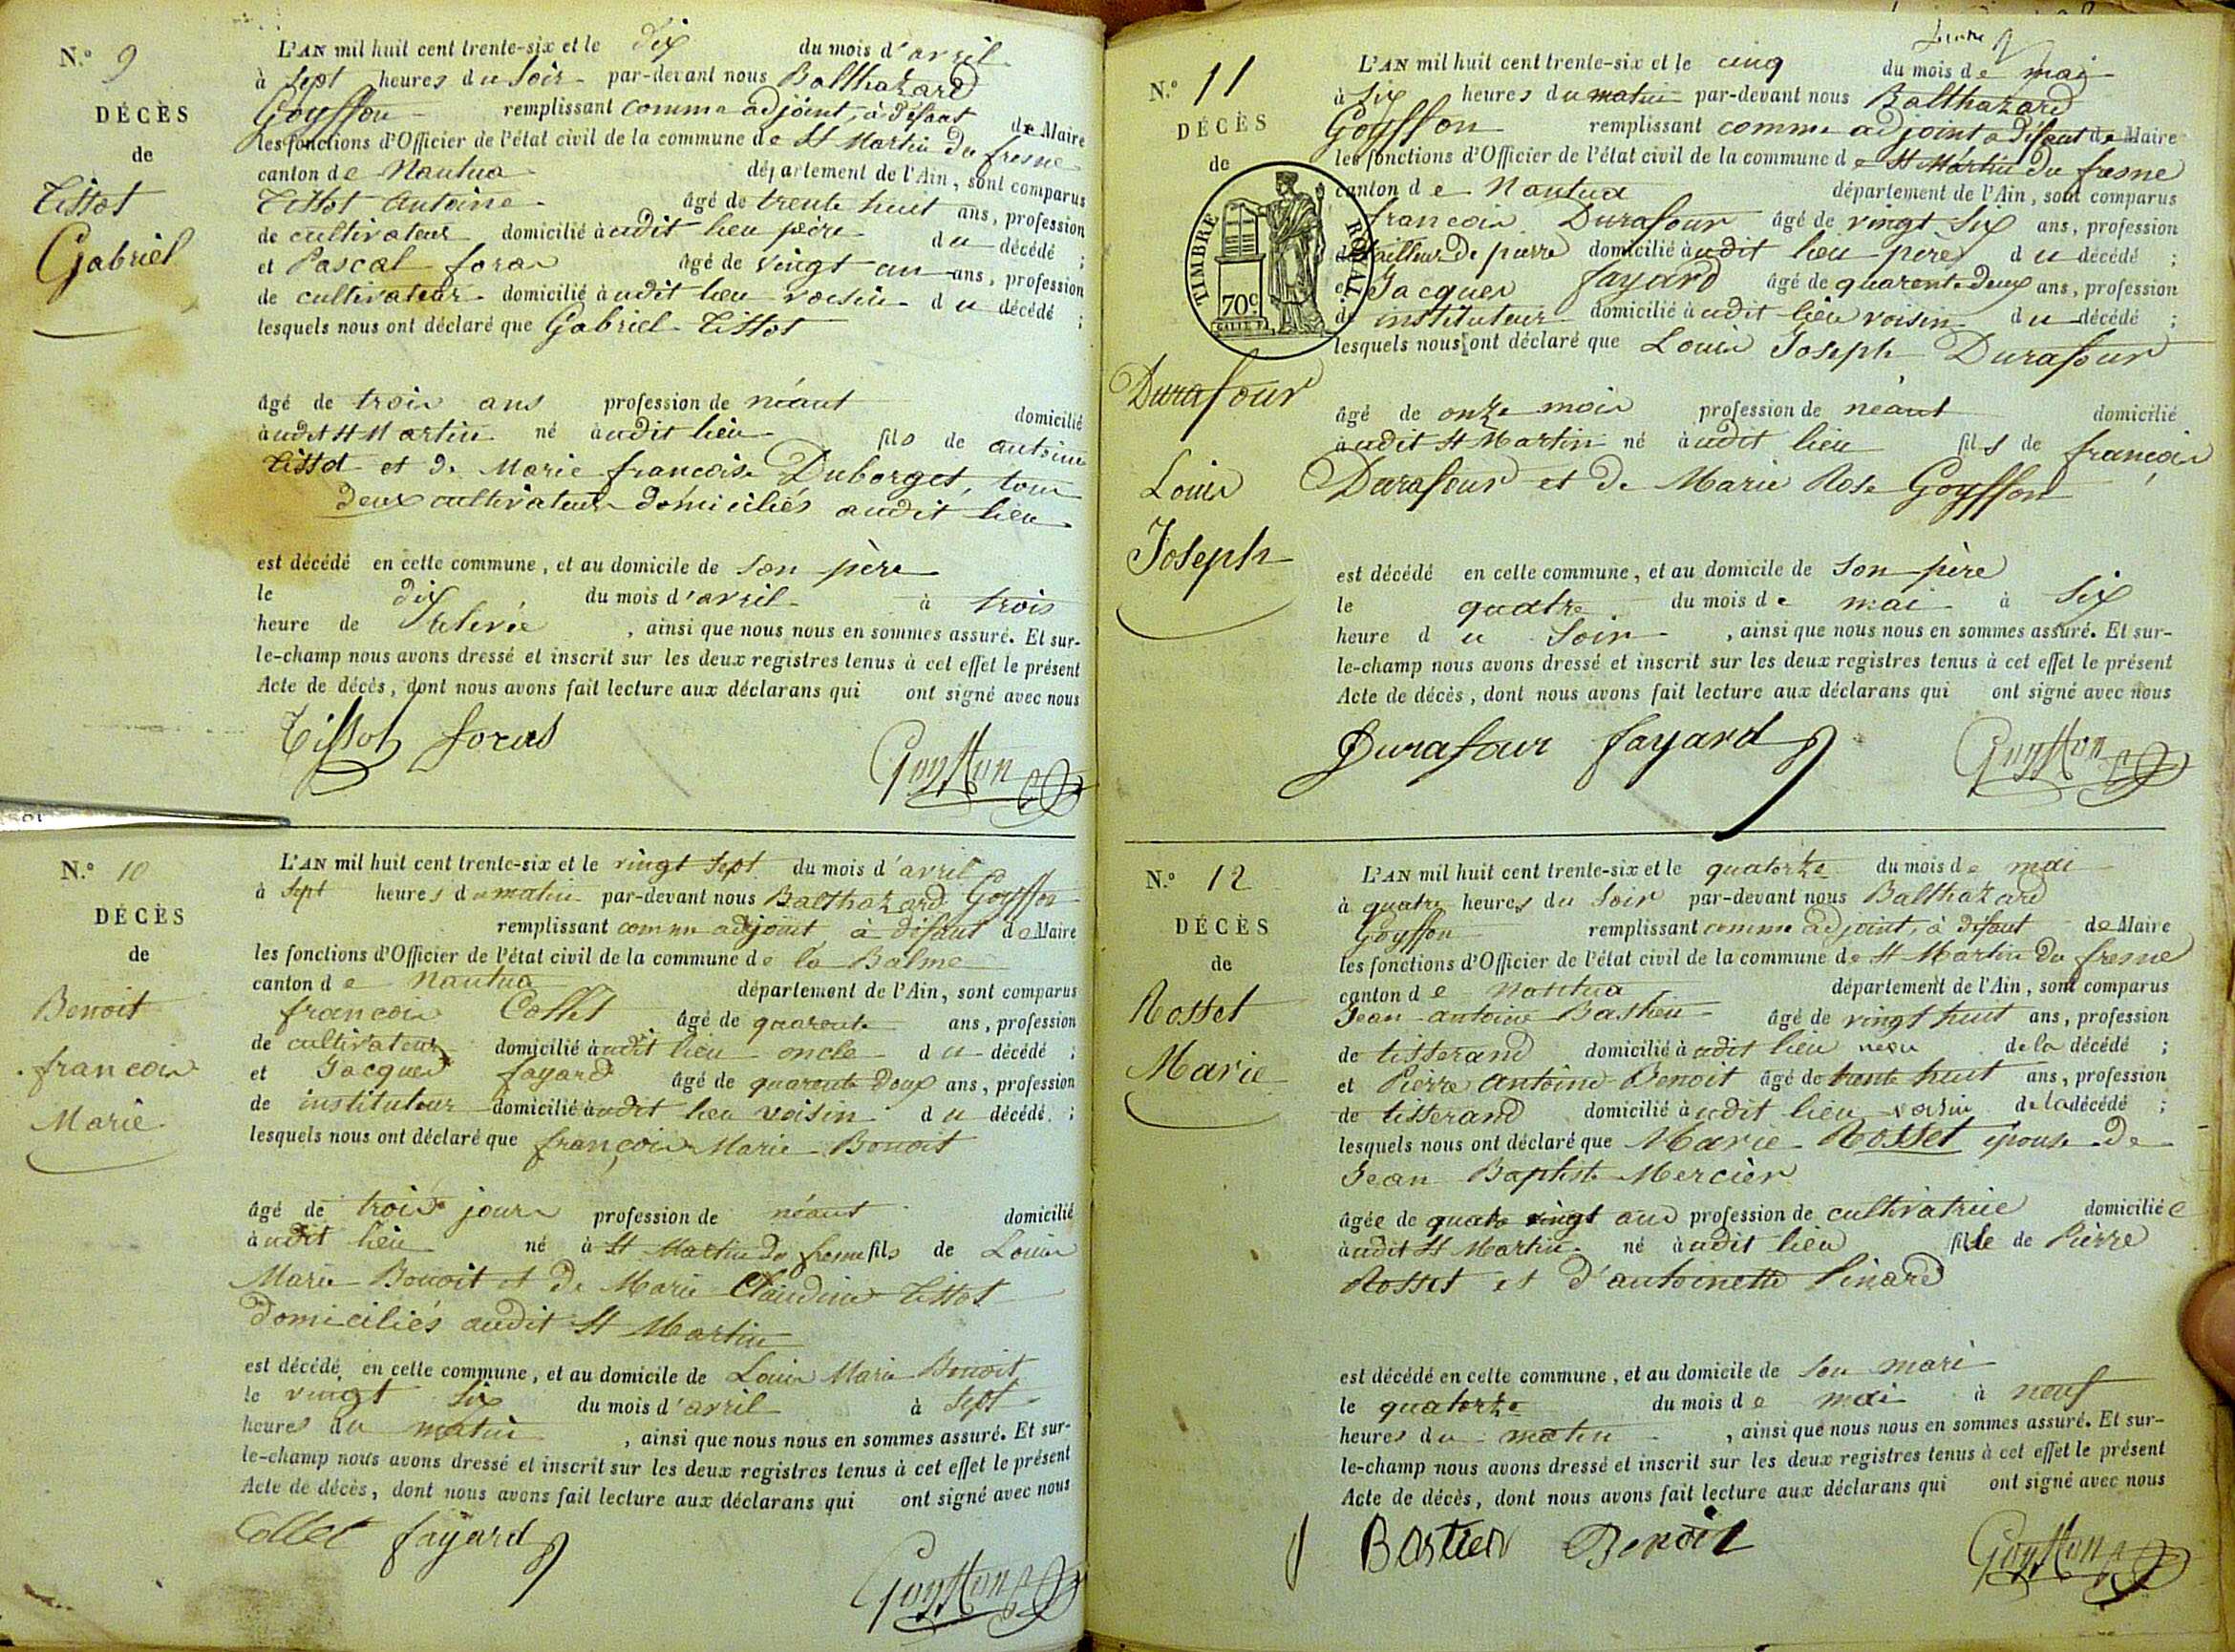 N.º 9
DÉCÈS
de
Tissot
Gabriel
L'AN mil huit cent trente-six et le dix du mois d'avril
à sept heures du soir par-devant nous Balthazard
Goyffon remplissant comme adjoint, à défaut de Maire
les fonctions d'Officier de l'état civil de la commune de St Martin du fresne
canton de Nantua département de l'Ain, sont comparus
Tissot Antoine âgé de trente huit ans, profession
de cultivateur domicilié audit lieu père du décédé ;
et Pascal foras âgé de vingt un ans, profession
de cultivateur domicilié audit lieu voisin du décédé ;
lesquels nous ont déclaré que Gabriel Tissot
âgé de trois ans profession de néant domicilié
audit St Martin né audit lieu fils de antoine
Tissot et de Marie francoise Duborget, tous
deux cultivateurs domiciliés audit lieu
est décédé en cette commune, et au domicile de son père
le dix du mois d'avril à trois
heure de relevée , ainsi que nous nous en sommes assuré. Et sur-
le-champ nous avons dressé et inscrit sur les deux registres tenus à cet effet le présent
Acte de décès, dont nous avons fait lecture aux déclarans qui ont signé avec nous
Tissot foras
Goyffon
N.º 10
DÉCÈS
de
Benoit
francois
Marie
L'AN mil huit cent trente-six et le vingt sept du mois d'avril
à sept heures du matin par-devant nous Balthazard Goyffon
remplissant comme adjoint à défaut de Maire
les fonctions d'Officier de l'état civil de la commune de la Balme
canton de Nantua département de l'Ain, sont comparus
francois Collet âgé de quarente ans, profession
de cultivateur domicilié audit lieu oncle du décédé ;
et Jacques fayard âgé de quarente deux ans, profession
de instituteur domicilié audit lieu voisin du décédé ;
lesquels nous ont déclaré que françois Marie Benoit
âgé de trois jours profession de néant domicilié
audit lieu né à St Martin du fresne fils de Louis
Marie Benoit et de Marie Claudine Tissot
domiciliés audit St Martin
est décédé en cette commune, et au domicile de Louis Marie Benoit
le vingt six du mois d'avril à sept
heures du matin , ainsi que nous nous en sommes assuré. Et sur-
le-champ nous avons dressé et inscrit sur les deux registres tenus à cet effet le présent
Acte de décès, dont nous avons fait lecture aux déclarans qui ont signé avec nous
Collet fayard
Goyffon
N.º 11
DÉCÈS
de
TIMBRE ROYAL
70c
Durafour
Louis
Joseph
L'AN mil huit cent trente-six et le cinq du mois de mai
à six heures du matin par-devant nous Balthazard
Goyffon remplissant comme adjoint a défaut de Maire
les fonctions d'Officier de l'état civil de la commune de St Martin du fresne
canton de Nantua département de l'Ain, sont comparus
francois Durafour âgé de vingt six ans, profession
de tailleur de pierre domicilié audit lieu pere du décédé ;
et Jacques fayard âgé de quarente deux ans, profession
de instituteur domicilié audit lieu voisin du décédé ;
lesquels nous ont déclaré que Louis Joseph Durafour
âgé de onze mois profession de néant domicilié
audit St Martin né audit lieu fils de françois
Durafour et de Marie Rose Goyffon
est décédé en cette commune, et au domicile de son père
le quatre du mois de mai à six
heure du soir , ainsi que nous nous en sommes assuré. Et sur-
le-champ nous avons dressé et inscrit sur les deux registres tenus à cet effet le présent
Acte de décès, dont nous avons fait lecture aux déclarans qui ont signé avec nous
Durafour fayard
Goyffon
N.º 12
DÉCÈS
de
Rosset
Marie
L'AN mil huit cent trente-six et le quatorze du mois de mai
à quatre heures du soir par-devant nous Balthazard
Goyffon remplissant comme adjoint, à défaut de Maire
les fonctions d'Officier de l'état civil de la commune de St Martin du fresne
canton de Nantua département de l'Ain, sont comparus
Jean antoine Bastien âgé de vingt huit ans, profession
de tisserand domicilié audit lieu neveu de la décédé ;
et Pierre Antoine Benoit âgé de trente huit ans, profession
de tisserand domicilié audit lieu voisin de la décédé ;
lesquels nous ont déclaré que Marie Rosset épouse de
Jean Baptiste Mercier
âgée de quatre vingt ans profession de cultivatrice domiciliée
audit St Martin né audit lieu fille de Pierre
Rosset et d'antoinette Pinard
est décédé en cette commune, et au domicile de son mari
le quatorze du mois de mai à neuf
heures du matin , ainsi que nous nous en sommes assuré. Et sur-
le-champ nous avons dressé et inscrit sur les deux registres tenus à cet effet le présent
Acte de décès, dont nous avons fait lecture aux déclarans qui ont signé avec nous
Bastien Benoit
Goyffon